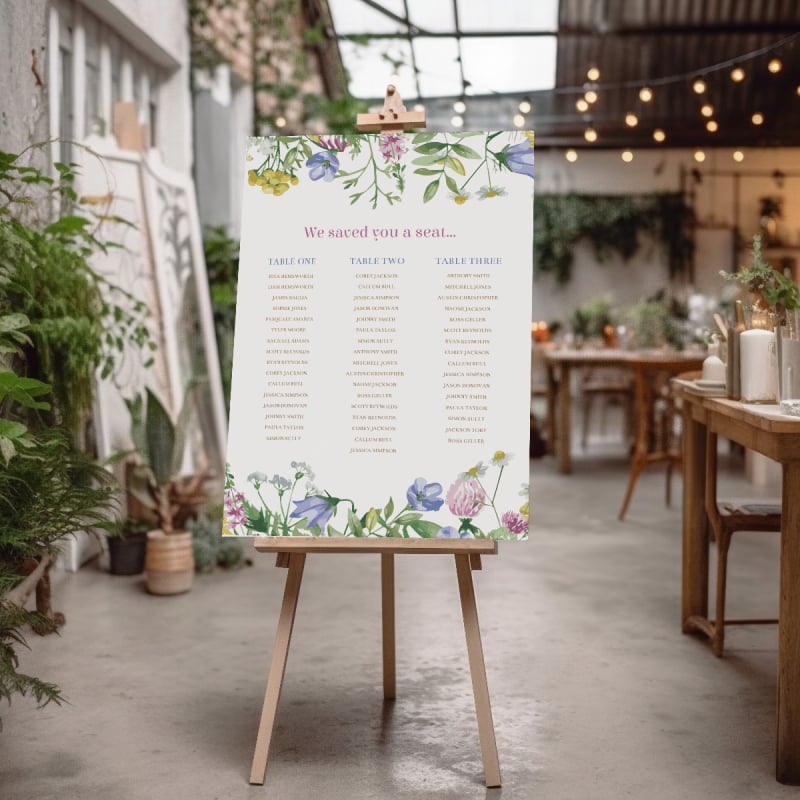 We saved you a seat...
TABLE ONE
LIAM HEMSWORTH
JAMES BAGLIA
SOPHIE JONES
TYLER MOORE
RACHAEL ADAMS
SCOTT REYNOLDS
RYAN REYNOLDS
COREY JACKSON
CALLUM BULL
JESSICA SIMPSON
JASON DONOVAN
JOHNNY SMITH
PAULA TAYLOR
SIMON SULLY
TABLE TWO
COREY JACKSON
CALLUM BULL
JESSICA SIMPSON
JASON DONOVAN
JOHNNY SMITH
PAULA TAYLOR
SIMON SULLY
ANTHONY SMITH
MITCHELL JONES
AUSTIN CHRISTOPHER
NAOMI JACKSON
ROSS GELLER
SCOTT REYNOLDS
RYAN REYNOLDS
COREY JACKSON
CALLUM BULL
JESSICA SIMPSON
TABLE THREE
ANTHONY SMITH
MITCHELL JONES
AUSTIN CHRISTOPHER
NAOMI JACKSON
ROSS GELLER
SCOTT REYNOLDS
RYAN REYNOLDS
COREY JACKSON
CALLUM BULL
JESSICA SIMPSON
JASON DONOVAN
JOHNNY SMITH
PAULA TAYLOR
SIMON SULLY
JACKSON TORY
ROSS GELLER